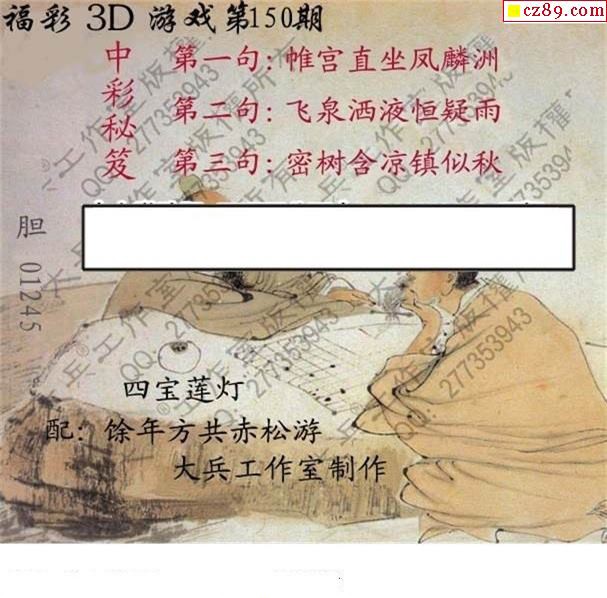 cz89.com
福彩 3D 游戏第150期
中彩秘笈
第一句：帷宫直坐凤麟洲
第二句：飞泉洒液恒疑雨
第三句：密树含凉镇似秋
胆 01245
四宝莲灯
配：馀年方共赤松游
大兵工作室制作
大兵工作室版权所有
QQ：277353943